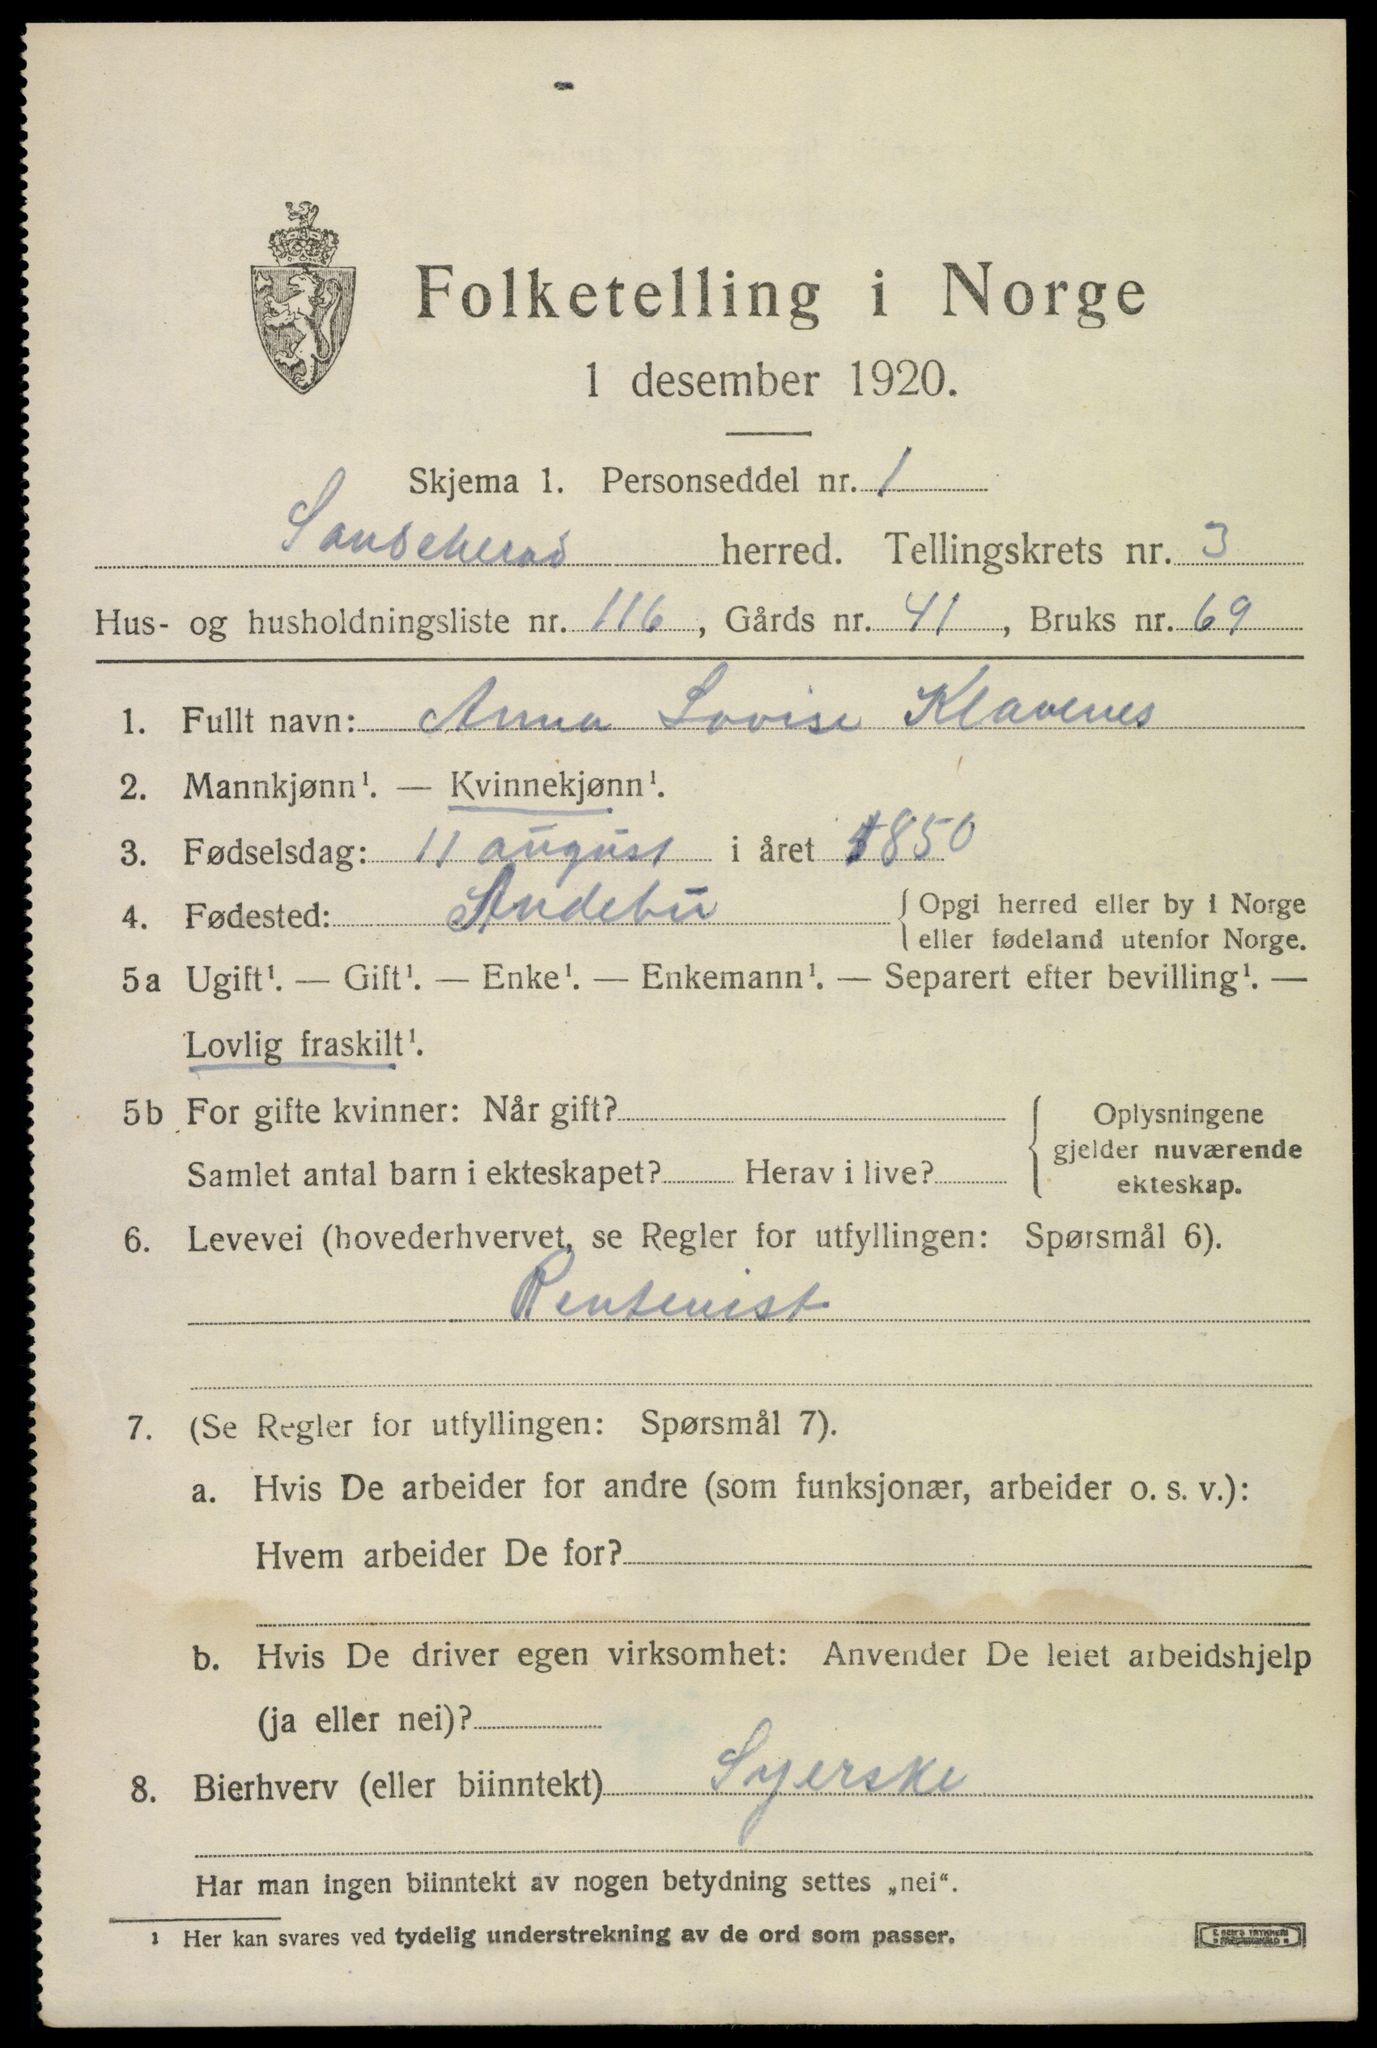 Folketelling i Norge
1 desember 1920.
Skjema 1. Personseddel nr. 1
Sandeherad herred. Tellingskrets nr. 3
Hus- og husholdningsliste nr. 116, Gårds nr. 41, Bruks nr. 69
1. Fullt navn: Anna Lovise Klavenes
2. Mannkjønn¹. — Kvinnekjønn¹.
3. Fødselsdag: 11 august i året 1850
4. Fødested: Andebu { Opgi herred eller by i Norge
eller fødeland utenfor Norge.
5a Ugift¹. — Gift¹. — Enke¹. — Enkemann¹. — Separert efter bevilling¹. —
Lovlig fraskilt¹.
5b For gifte kvinner: Når gift? { Oplysningene
gjelder nuværende
Samlet antal barn i ekteskapet? Herav i live? ekteskap.
6. Levevei (hovederhvervet, se Regler for utfyllingen: Spørsmål 6).
Rentenist
7. (Se Regler for utfyllingen: Spørsmål 7).
a. Hvis De arbeider for andre (som funksjonær, arbeider o. s. v.):
Hvem arbeider De for?
b. Hvis De driver egen virksomhet: Anvender De leiet arbeidshjelp
(ja eller nei)?
8. Bierhverv (eller biinntekt) Syerske
Har man ingen biinntekt av nogen betydning settes „nei“.
¹ Her kan svares ved tydelig understrekning av de ord som passer.